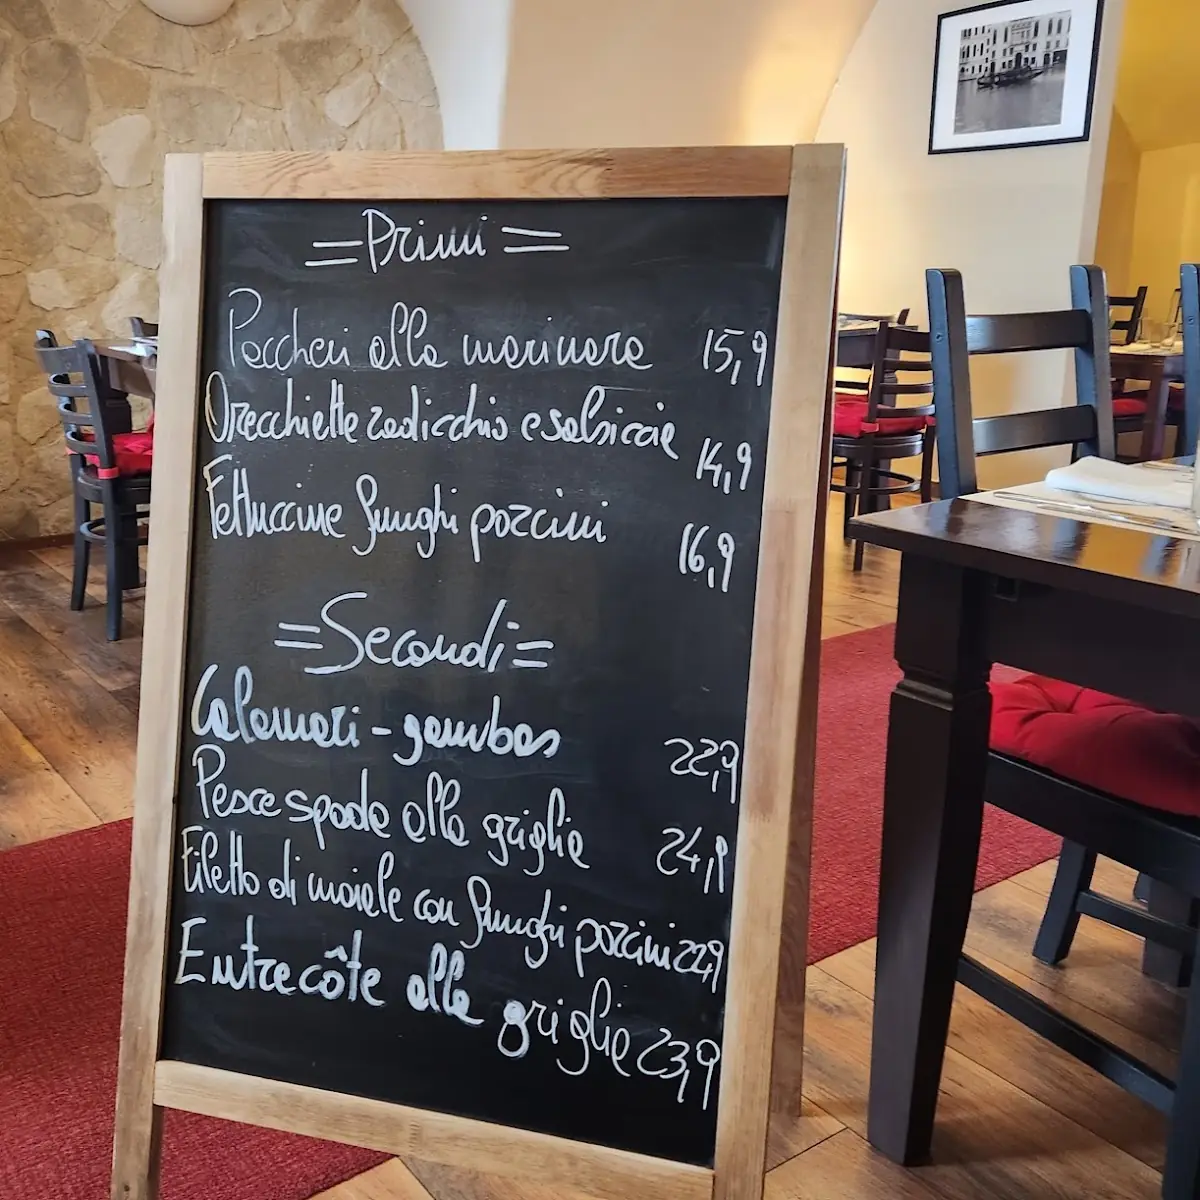 = Primi =
Paccheri alla marinara 15,9
Orecchiette radicchio e salsiccia 14,9
Fettuccine funghi porcini 16,9
= Secondi =
Calamari - gambas 22,9
Pesce spada alla griglia 24,9
Filetto di maiale con funghi porcini 22,9
Entrecôte alla griglia 23,9